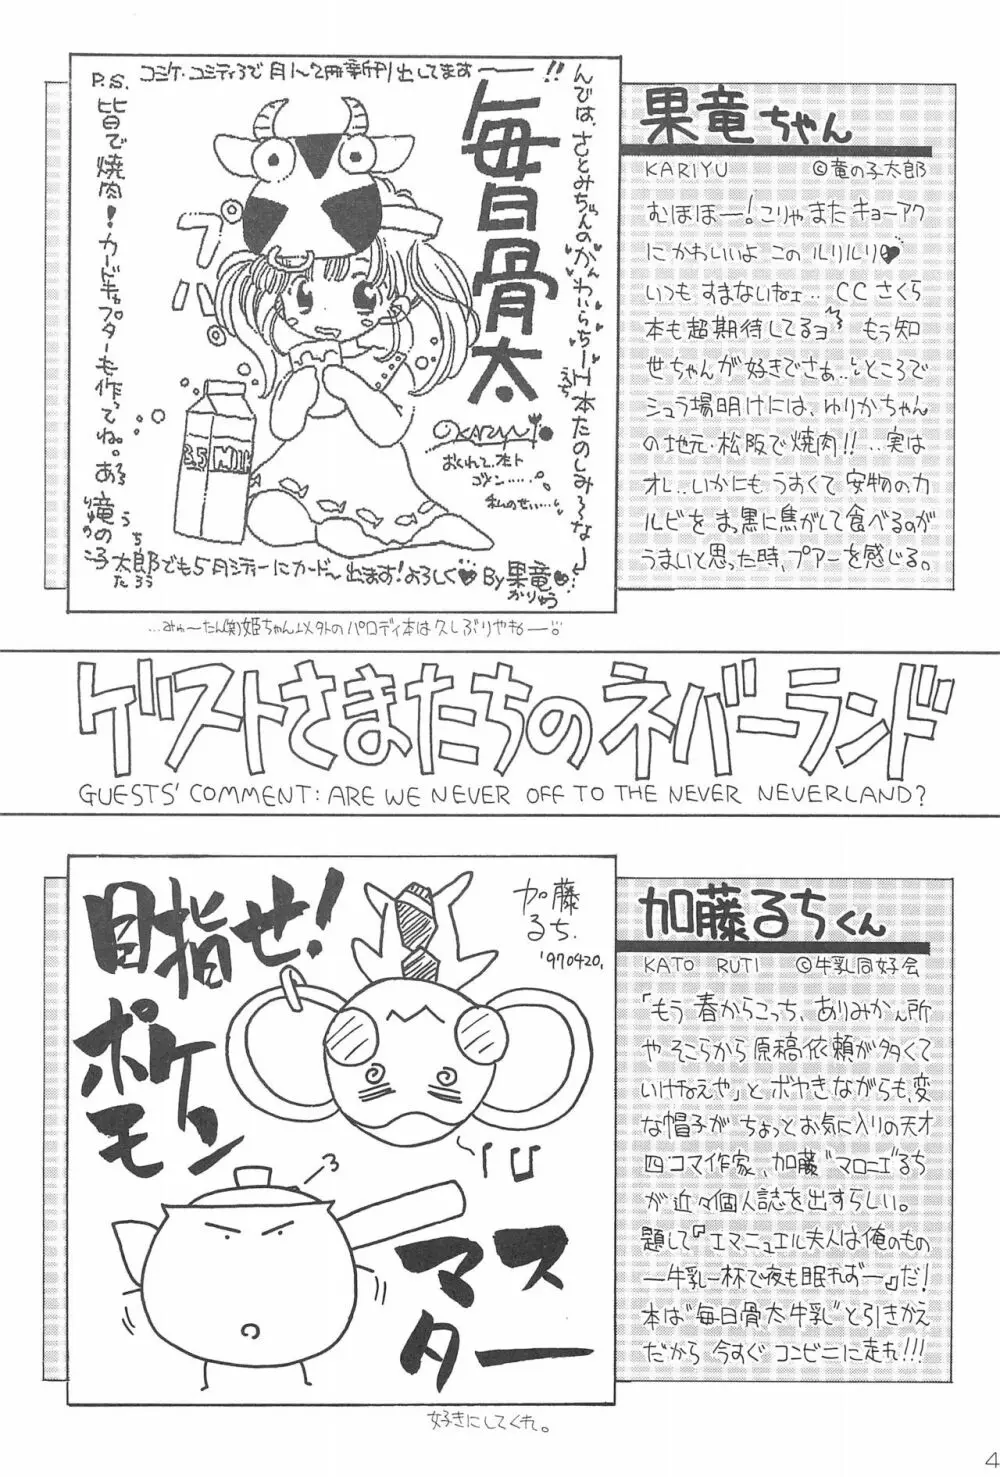 コミケ・コミティアで月1〜2冊新刊出してます——!!
毎日骨太
んでは、さとみちゃんのかわいらちーH本たのしみ〜な
えっち
P.S. 皆で焼肉!カードキャプターも作ってね。
プハ
3.5 MILK
KARIYU
おくれて、ホト
ゴメン……
私のせい……
竜の子太郎でも5月シティーにカード〜出ます!よろしく♥ By果竜♥
かりゅう
…みゅ〜たん(笑)姫ちゃん以外のパロディ本は久しぶりやもー。
果竜ちゃん
KARIYU ©竜の子太郎
むほほー!こりゃまたキョーアク
にかわいいよ このルリルリ♥
いつもすまないねェ‥ CCさくら
本も超期待してるヨ もう知
世ちゃんが好きでさぁ‥ところで
シュラ場明けには、ゆりかちゃん
の地元・松阪で焼肉!! ‥実は
オレ‥いかにもうすくて安物のカ
ルビをまっ黒に焦がして食べるのが
うまいと思った時、プアーを感じる。
ゲストさまたちのネバーランド
GUESTS' COMMENT: ARE WE NEVER OFF TO THE NEVER NEVERLAND?
目指せ!
ポケモン
マスター
加藤
るち.
'970420.
3
好きにしてくれ。
加藤るちくん
KATO RUTI ©牛乳同好会
「もう春からこっち、ありみかん所
やそこらから原稿依頼が多くて
いけねえや」とボヤきながらも変
な帽子がちょっとお気に入りの天才
四コマ作家、加藤"マロニエ"るち
が近々個人誌を出すらしい。
題して『エマニュエル夫人は俺のもの
—牛乳一杯で夜も眠れず—』だ!
本は"毎日骨太牛乳"と引きかえ
だから今すぐコンビニに走れ!!!
4